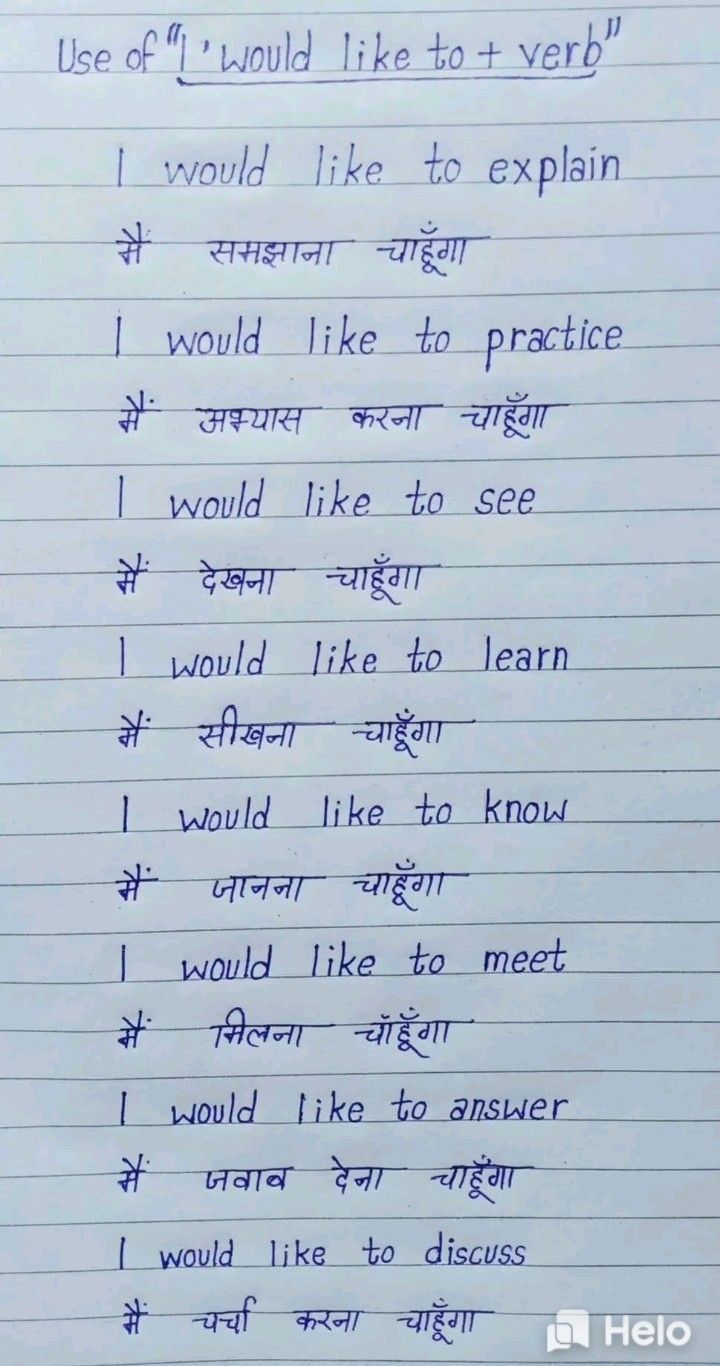 Use of "I' would like to + verb"
I would like to explain
मैं समझाना चाहूँगा
I would like to practice
मैं अभ्यास करना चाहूँगा
I would like to see
मैं देखना चाहूँगा
I would like to learn
मैं सीखना चाहूँगा
I would like to know
मैं जानना चाहूँगा
I would like to meet
मैं मिलना चाँहूँगा
I would like to answer
मैं जवाव देना चाहूँगा
I would like to discuss
मैं चर्चा करना चाहूँगा
Helo